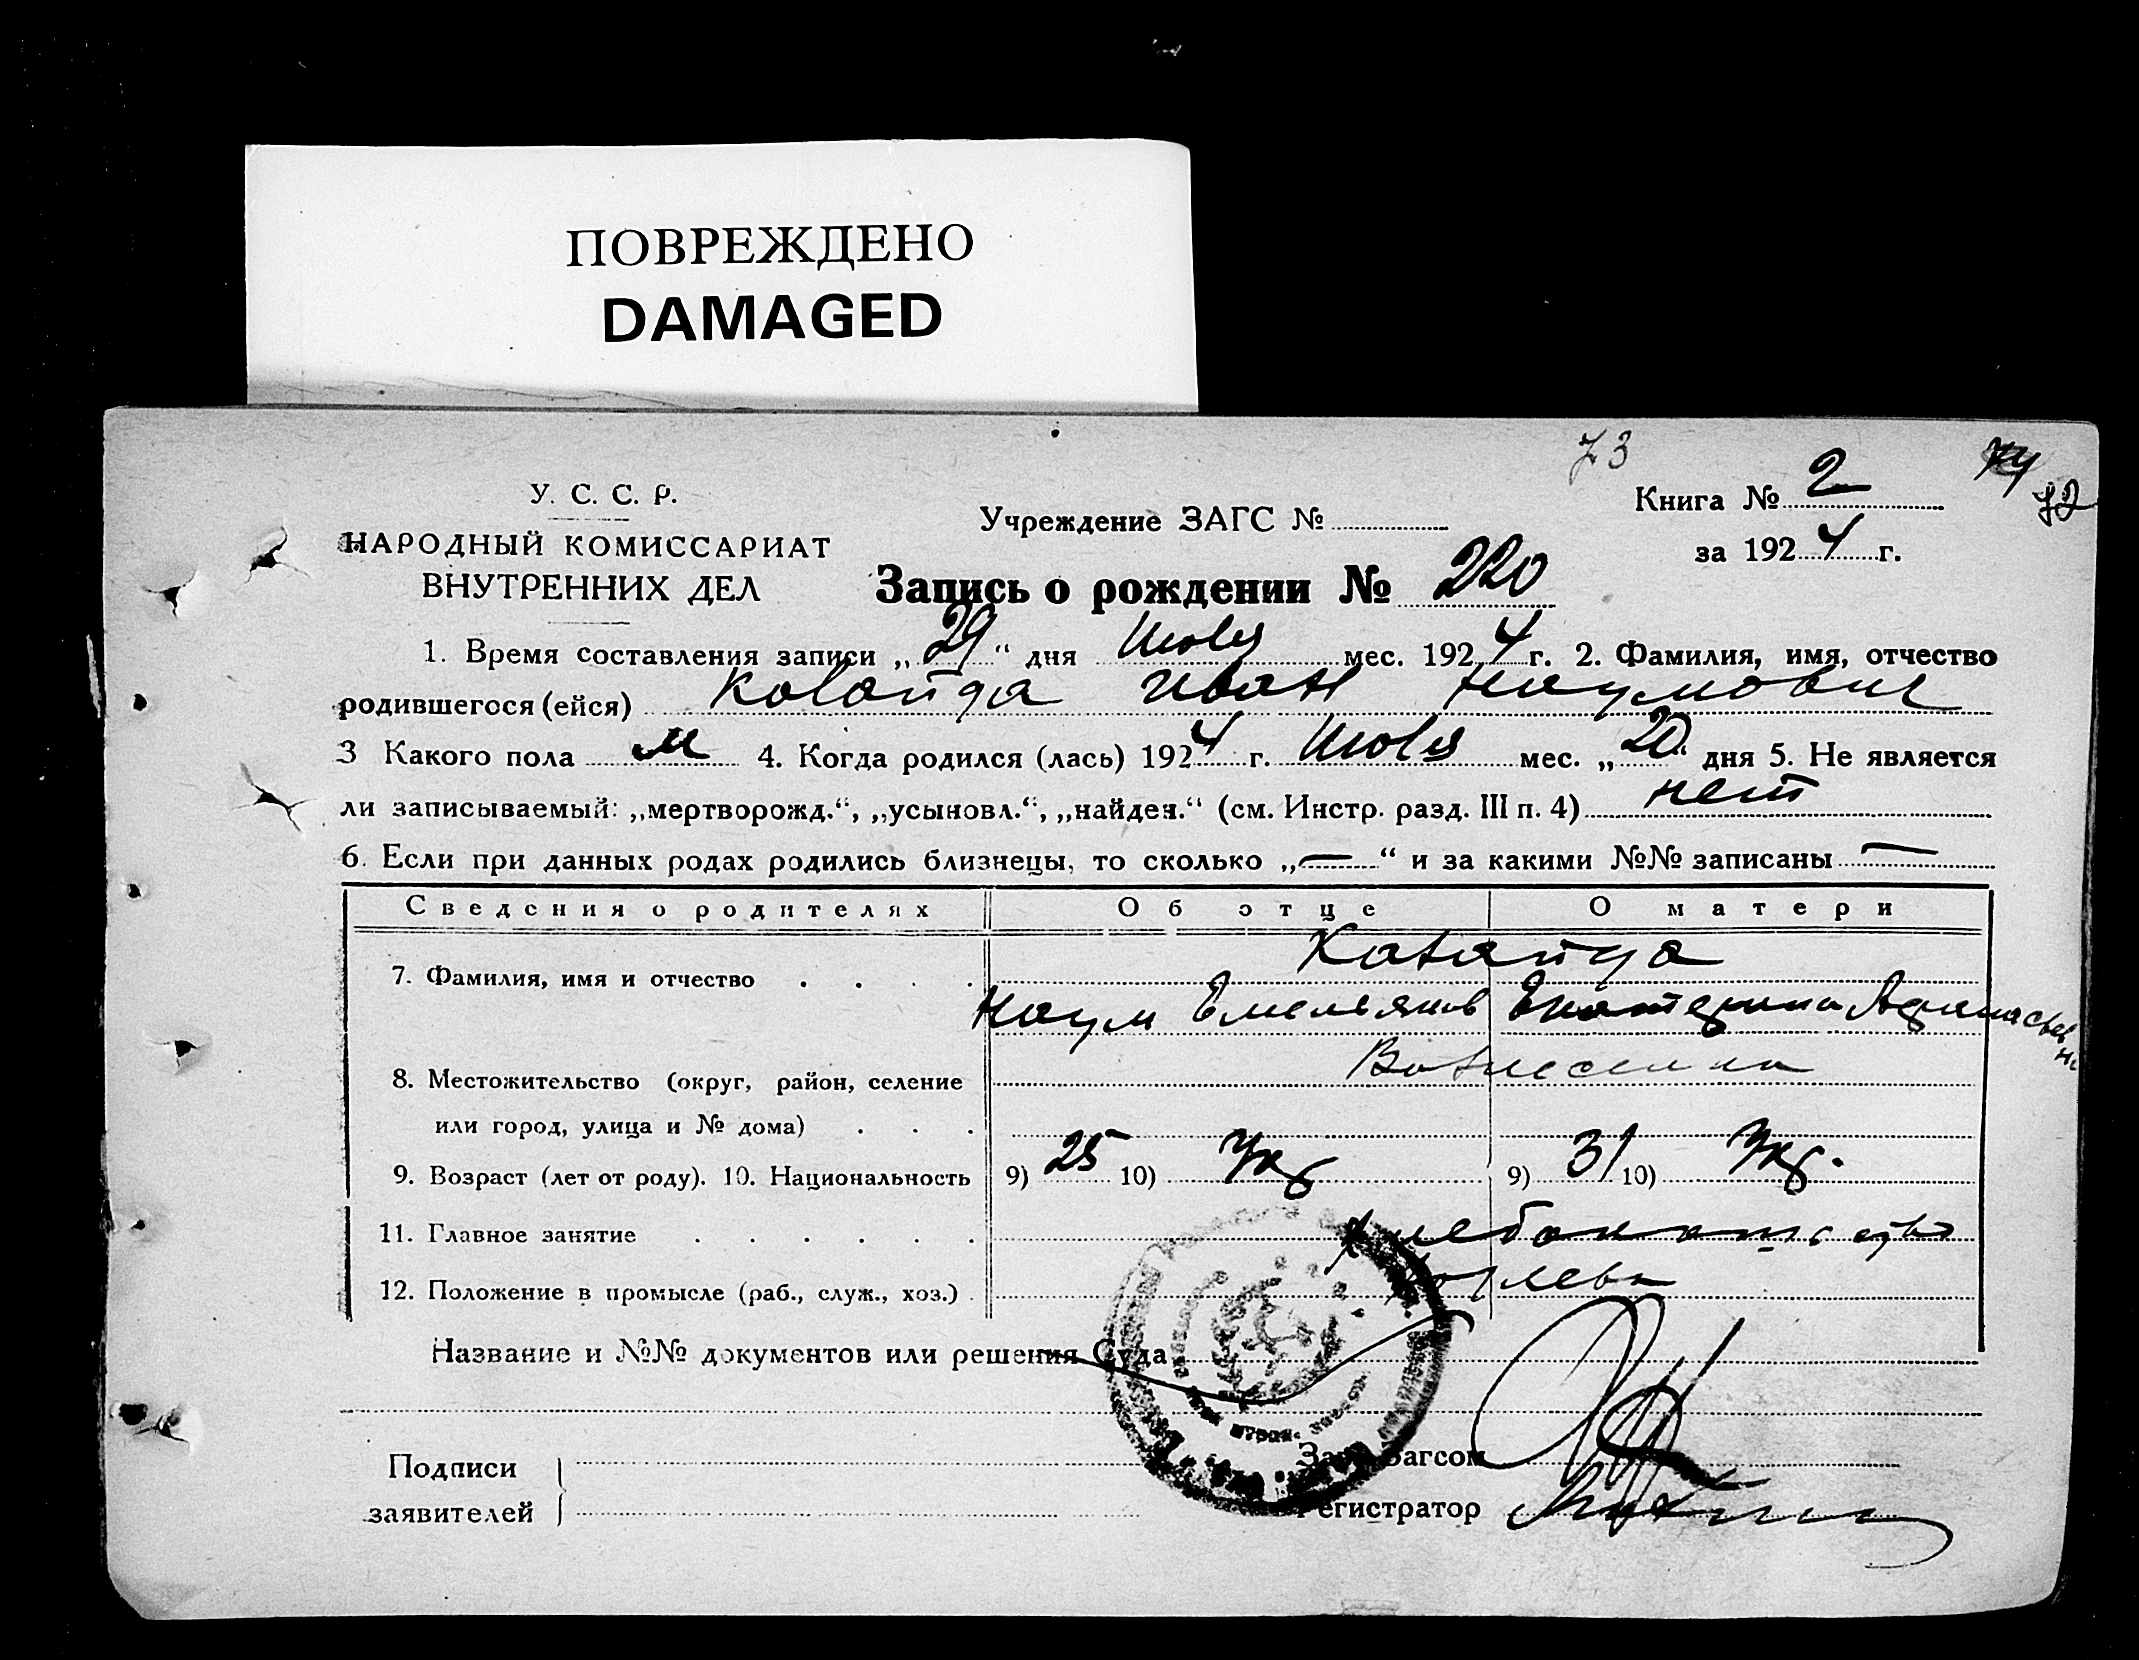 ПОВРЕЖДЕНО
DAMAGED
73
74
72
У. С. С. Р.
НАРОДНЫЙ КОМИССАРИАТ
ВНУТРЕННИХ ДЕЛ
Учреждение ЗАГС №
Книга № 2
за 1924 г.
Запись о рождении № 220
1. Время составления записи „29“ дня Июля мес. 1924 г. 2. Фамилия, имя, отчество
родившегося (ейся) Иван Наумович
3 Какого пола м 4. Когда родился (лась) 1924 г. Июля мес. „20“ дня 5. Не является
ли записываемый: „мертворожд.“, „усыновл.“, „найден.“ (см. Инстр. разд. III п. 4) нет
6. Если при данных родах родились близнецы, то сколько „—“ и за какими №№ записаны —
Сведения о родителях Об отце О матери
7. Фамилия, имя и отчество . . . .
Наум Емельянов Екатерина Афанасьевна
8. Местожительство (округ, район, селение
или город, улица и № дома) . . .
9. Возраст (лет от роду). 10. Национальность 9) 25 10) Укр 9) 31 10) Укр.
11. Главное занятие . . . . . . хлебопашество
12. Положение в промысле (раб., служ., хоз.) .
Название и №№ документов или решения Суда
Подписи
заявителей
Зав. Загсом
Регистратор